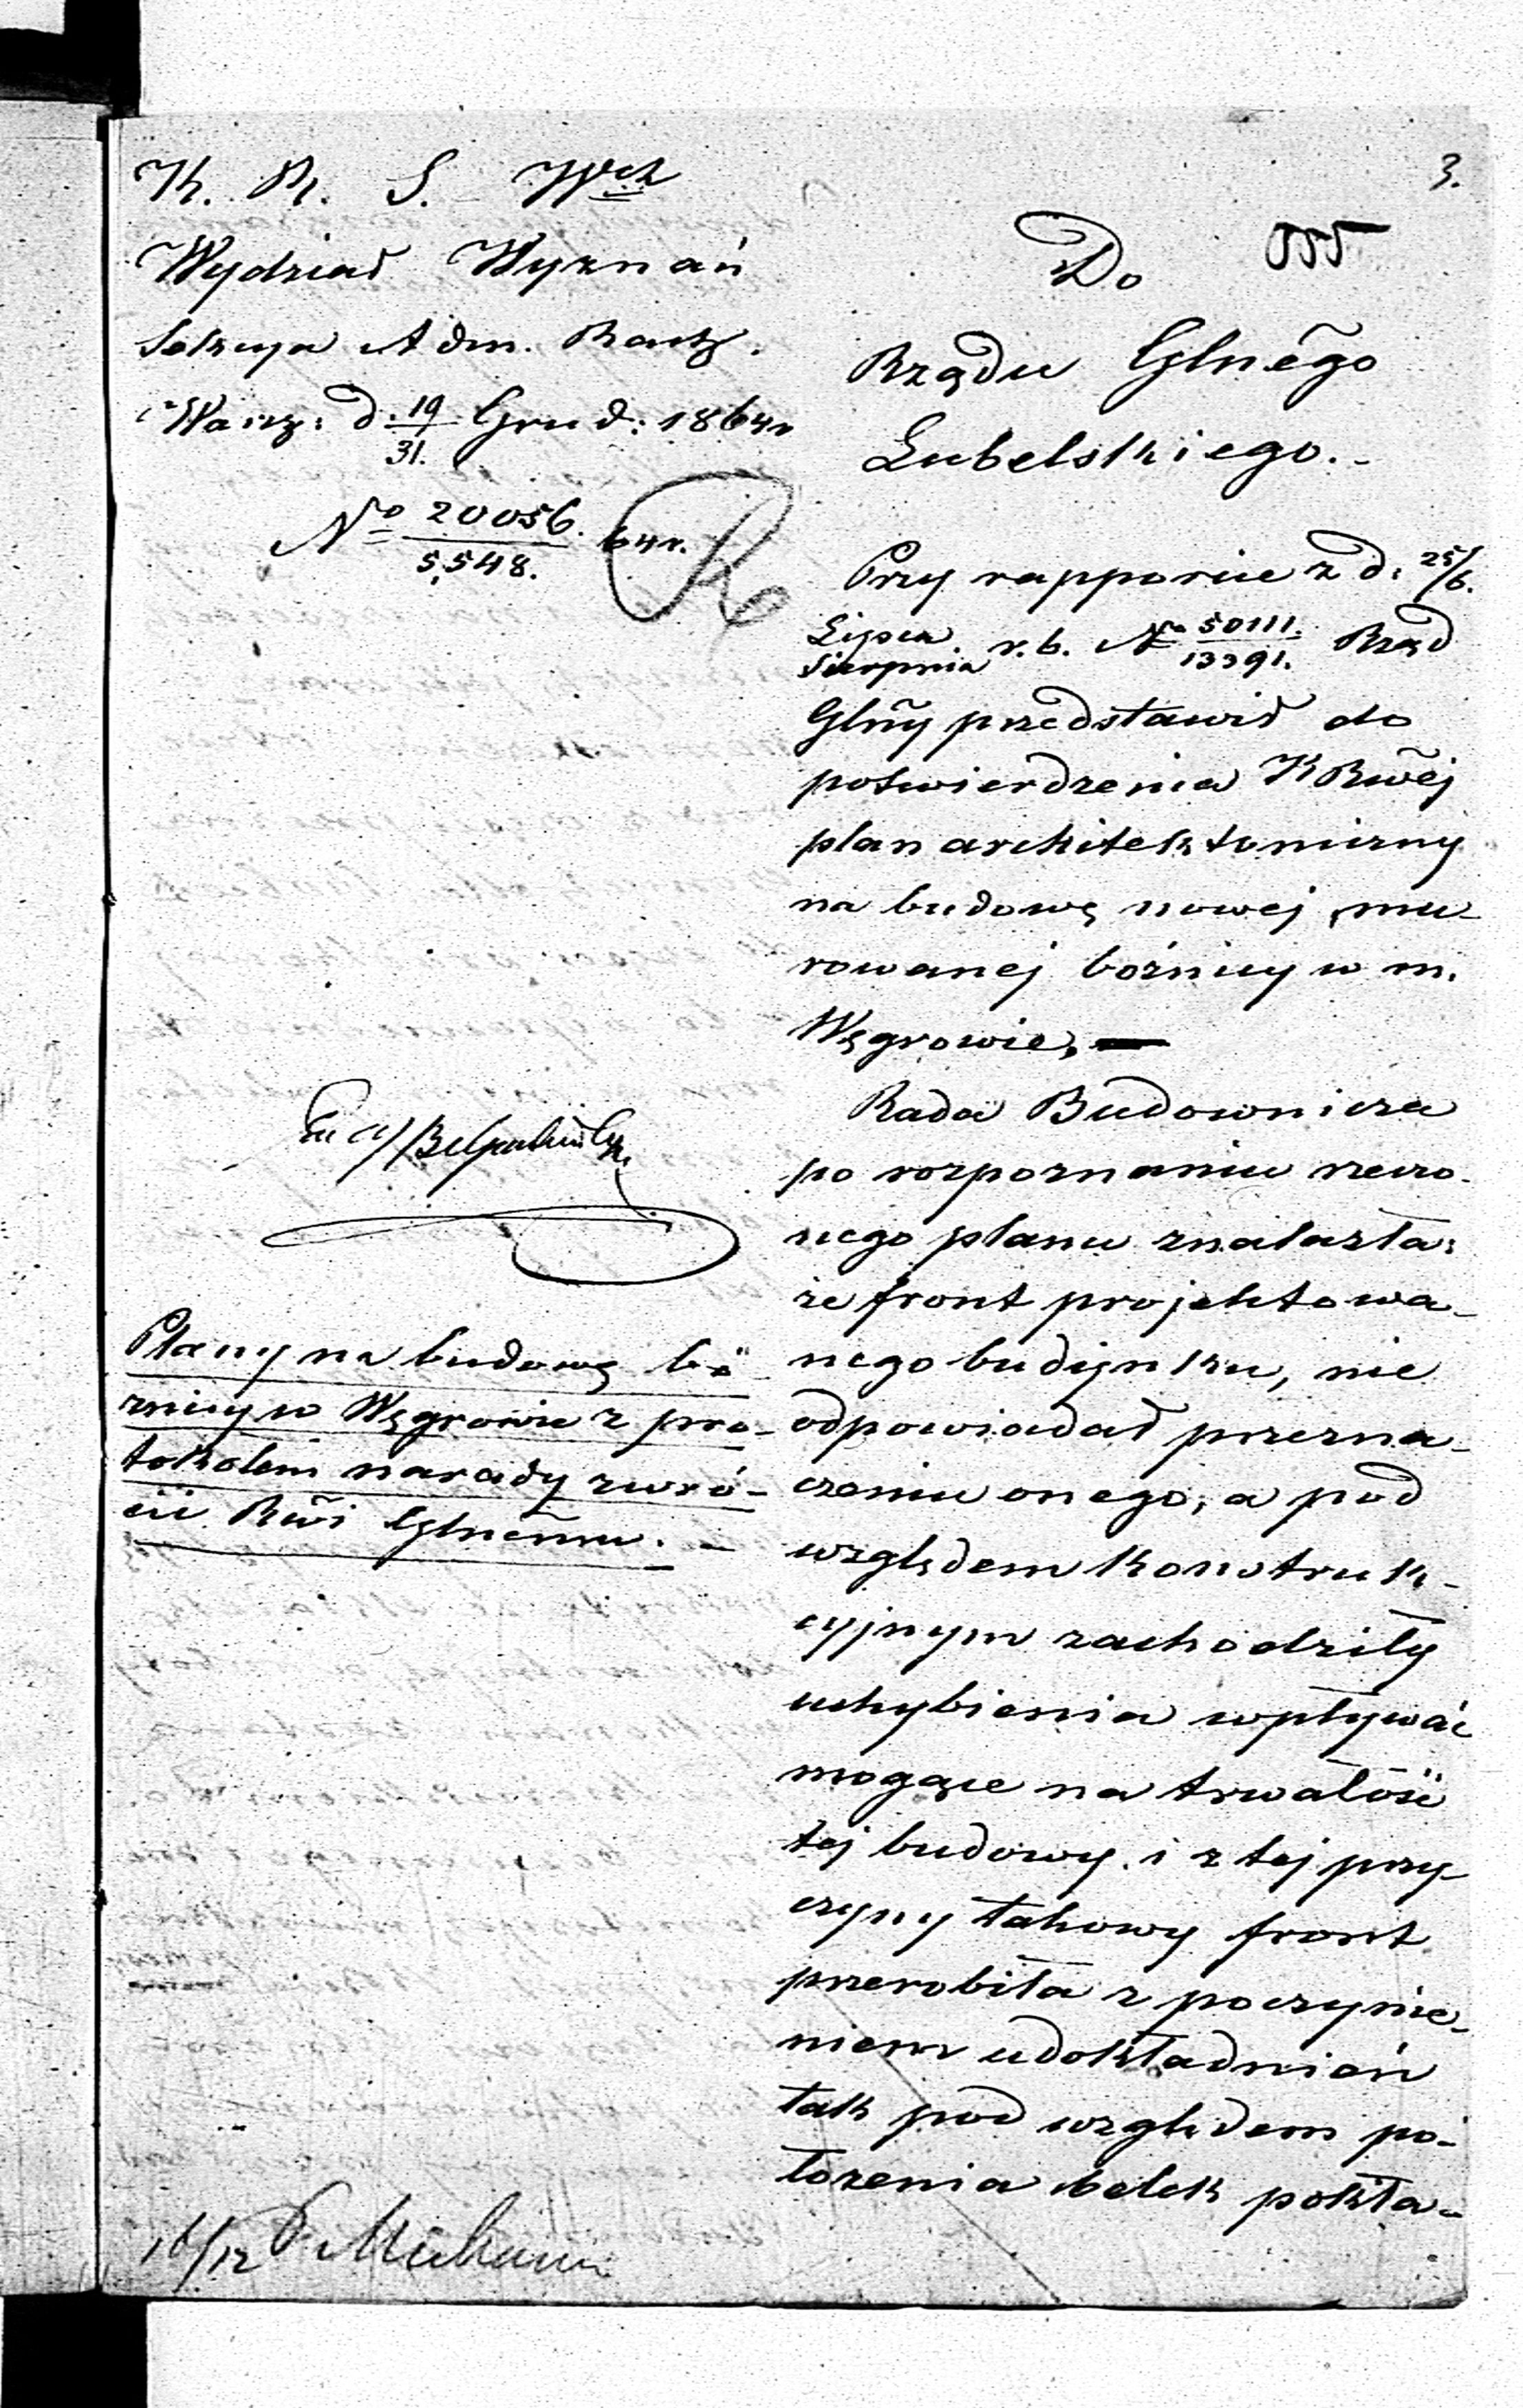 K. R. S. Wch
Wydział Wyznań
Sekcya Adm. Rach.
Warsz: d. 19/31. Grud: 1864 r
No 20056./5,548. 64 r.
3.
Do
Rządu Glnego
Lubelskiego.-
Przy rapporcie z d. 25/6.
Lipca/Sierpnia r. b. No 50111./13391. Rząd
Glny przedstawił do
potwierdzenia K Rwej
plan architektoniczny
na budowę nowej mu-
rowanej bóżnicy w m.
Węgrowie, —
Rada Budownicza
po rozpoznaniu rzeczo-
nego planu znalazła:
że front projektowa-
nego budynku, nie
odpowiadał przezna-
czeniu onego, a pod
względem konstruk-
cyjnym zachodziły
uchybienia wpływać
mogące na trwałość
tej budowy, i z tej przy-
czyny takowy front
przerobiła z poczynie-
niem udokładnień
tak pod względem po-
łożenia belek pokła-
Plany na budowę bó-
żnicy w Węgrowie z pro-
tokołem narady zwró-
cić Rwi Glnemu. -
16/12